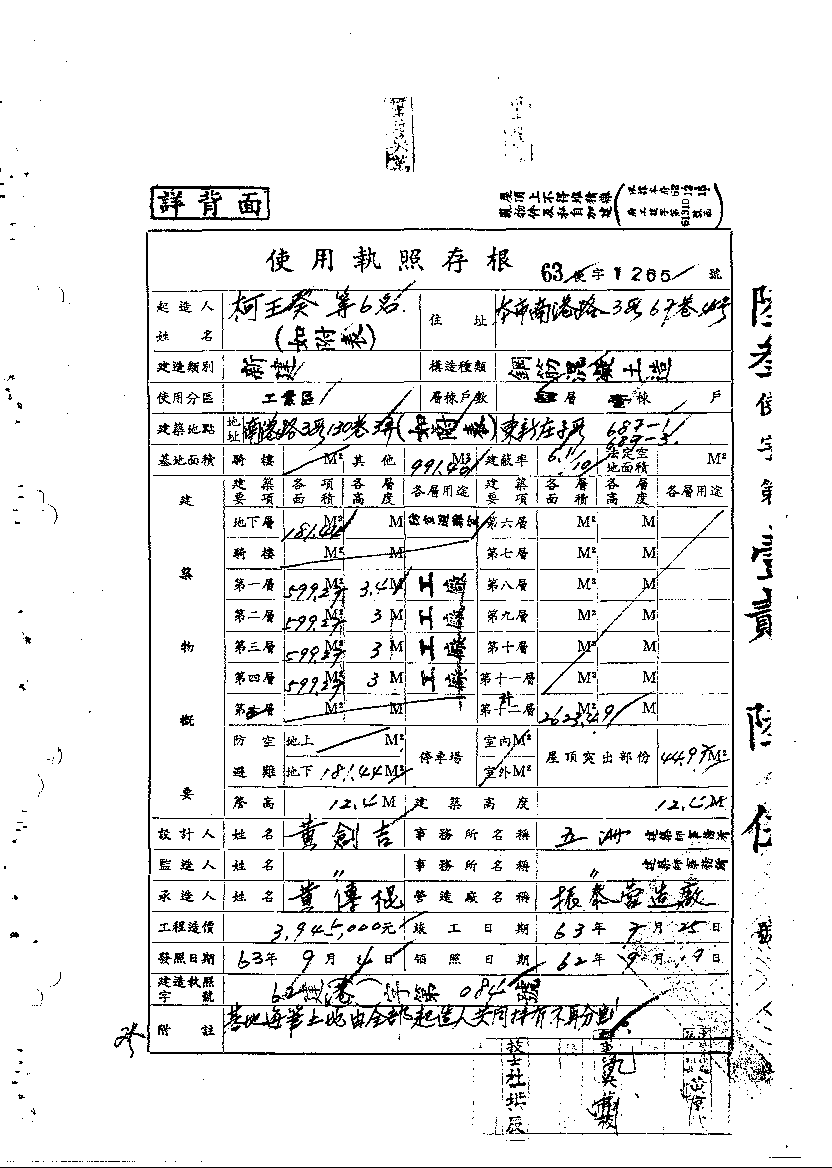 詳背面
使用執照存根 63使字1265號
起造人姓名 柯王葵等6名(如附表) 住址 本市南港路3段67巷4号
建造類別 新建 構造種類 鋼筋混凝土造
使用分區 工業區 層棟戶數 層 棟 戶
建築地點 地址 南港路3段130巷3弄(如附表)東新庄子段 687-1 689-3
基地面積 騎樓 M² 其他 991.40 M² 建蔽率 6.11/10 法定空地面積 M²
建築物概要
建築要項 各項面積 各層高度 各層用途 建築要項 各層面積 各層高度 各層用途
地下層 181.44 M² M 第六層 M² M
騎樓 M² M 第七層 M² M
第一層 599.27 M² 3.4 M 工廠 第八層 M² M
第二層 599.27 M² 3 M 工廠 第九層 M² M
第三層 599.27 M² 3 M 工廠 第十層 M² M
第四層 599.27 M² 3 M 工廠 第十一層 M² M
第五層 M² M 第十二層 計 2623.49 M² M
防空避難 地上 M² 停車場 室內 M² 屋頂突出部份 44.97 M²
地下 181.44 M² 室外 M²
簷高 12.4 M 建築高度 12.4 M
設計人 姓名 黃創吉 事務所名稱 五洲建築師事務所
監造人 姓名 〃 事務所名稱 〃 建築師事務所
承造人 姓名 黃傳棍 營造廠名稱 振泰營造廠
工程造價 3,945,000元 竣工日期 63年7月25日
發照日期 63年9月4日 領照日期 62年9月9日
建造執照字號 62建(港)字第084號
附註 基地每筆土地由全部起造人共同持有不再分割
技士杜